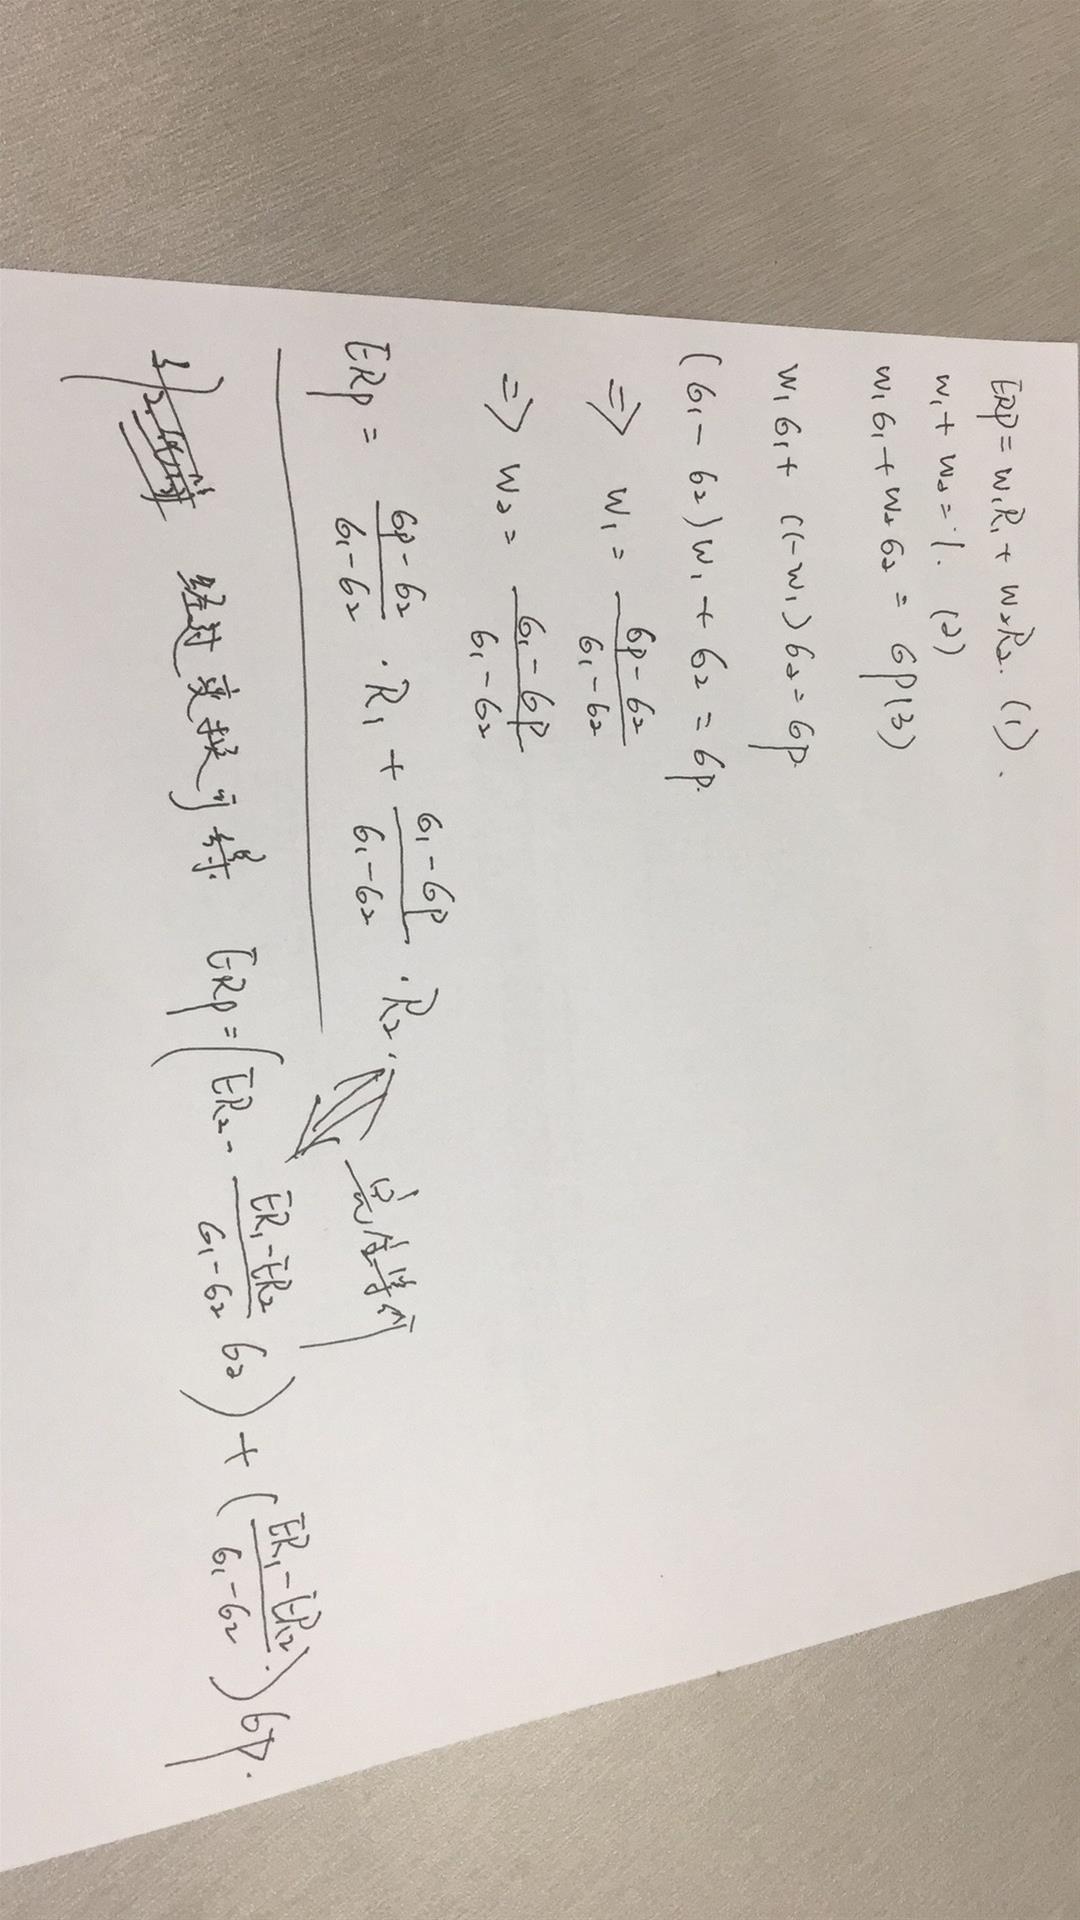 ERp = w₁R₁ + w₂R₂. (1).
w₁ + w₂ = 1. (2)
w₁σ₁ + w₂σ₂ = σp (3)
w₁σ₁ + (1-w₁)σ₂ = σp.
(σ₁ - σ₂)w₁ + σ₂ = σp.
⇒ w₁ = (σp - σ₂)/(σ₁ - σ₂)
⇒ w₂ = (σ₁ - σp)/(σ₁ - σ₂)
ERp = (σp - σ₂)/(σ₁ - σ₂) · R₁ + (σ₁ - σp)/(σ₁ - σ₂) · R₂.
完全等价
经过变换可得 ERp = (ER₂ - (ER₁ - ER₂)/(σ₁ - σ₂) σ₂) + ((ER₁ - ER₂)/(σ₁ - σ₂).) σp.